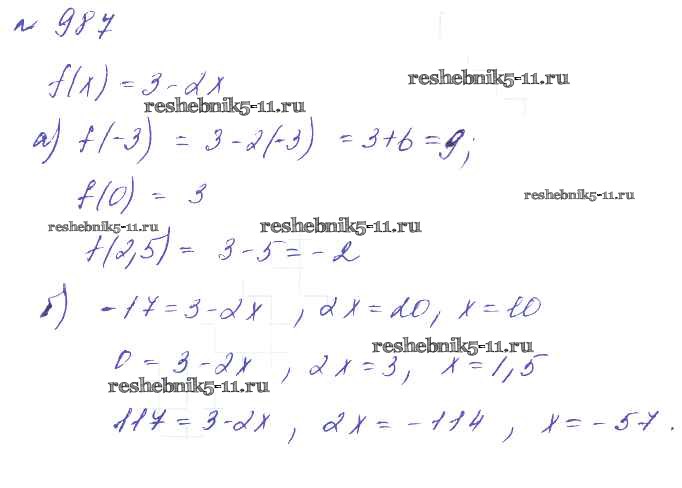 № 987
f(x) = 3 - 2x
reshebnik5-11.ru
reshebnik5-11.ru
а) f(-3) = 3 - 2(-3) = 3 + 6 = 9;
f(0) = 3
reshebnik5-11.ru
reshebnik5-11.ru
reshebnik5-11.ru
f(2,5) = 3 - 5 = - 2
б) -17 = 3 - 2x , 2x = 20, x = 10
reshebnik5-11.ru
0 = 3 - 2x , 2x = 3, x = 1,5
reshebnik5-11.ru
117 = 3 - 2x , 2x = - 114 , x = - 57 .